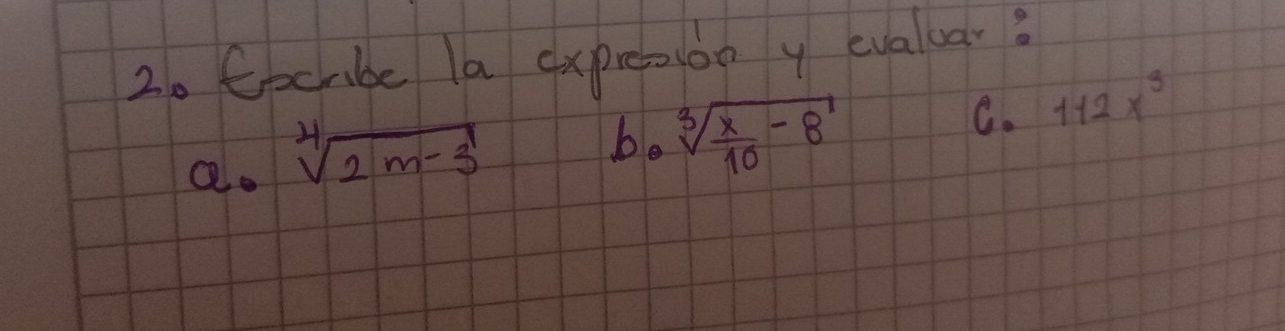 2. Escribe la expresión y evaluar:
a. ∜(2m-3) b. ∛(x/10 - 8) c. 112x³